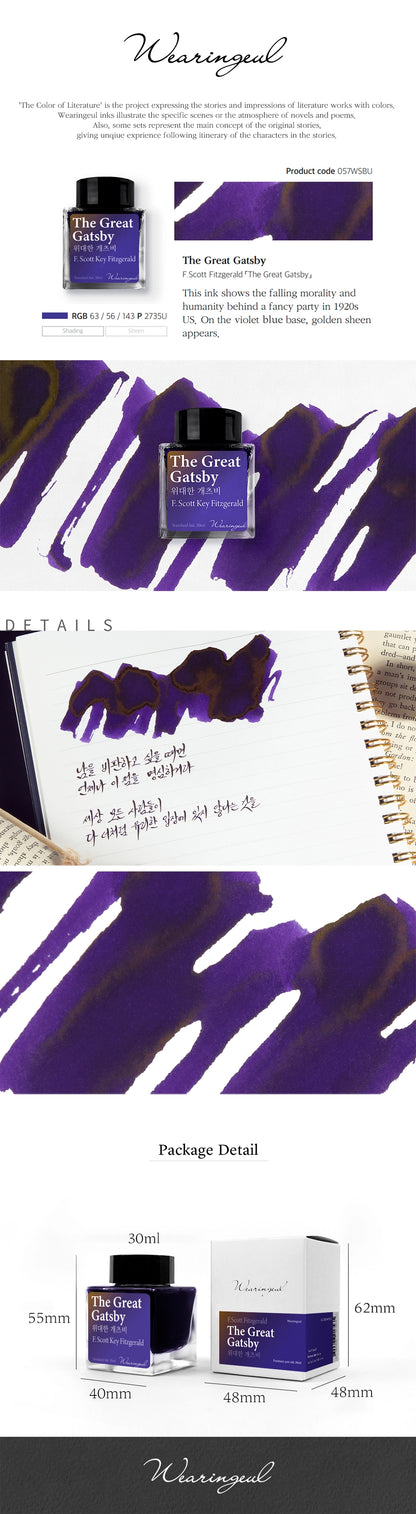 Wearingeul
"The Color of Literature" is the project expressing the stories and impressions of literature works with colors,
Wearingeul inks illustrate the specific scenes or the atmosphere of novels and poems.
Also, some sets represent the main concept of the original stories,
giving unqiue exprience following itinerary of the characters in the stories.
Product code 057WSBU
The Great
Gatsby
위대한 개츠비
F. Scott Key Fitzgerald
Wearingeul
The Great Gatsby
F.Scott Fitzgerald『The Great Gatsby』
This ink shows the falling morality and
humanity behind a fancy party in 1920s
US. On the violet blue base, golden sheen
appears.
RGB 63 / 56 / 143 P 2735U
Shading
Sheen
The Great
Gatsby
위대한 개츠비
F. Scott Key Fitzgerald
Wearingeul
DETAILS
남을 비판하고 싶을 때면
언제나 이 점을 명심하거라
세상 모든 사람들이
다 너처럼 유리한 입장에 있지 않다는 것을
Package Detail
30ml
55mm
40mm
The Great
Gatsby
위대한 개츠비
F. Scott Key Fitzgerald
Wearingeul
Wearingeul
F.Scott Fitzgerald
Wearingeul
The Great
Gatsby
위대한 개츠비
62mm
48mm
48mm
Wearingeul